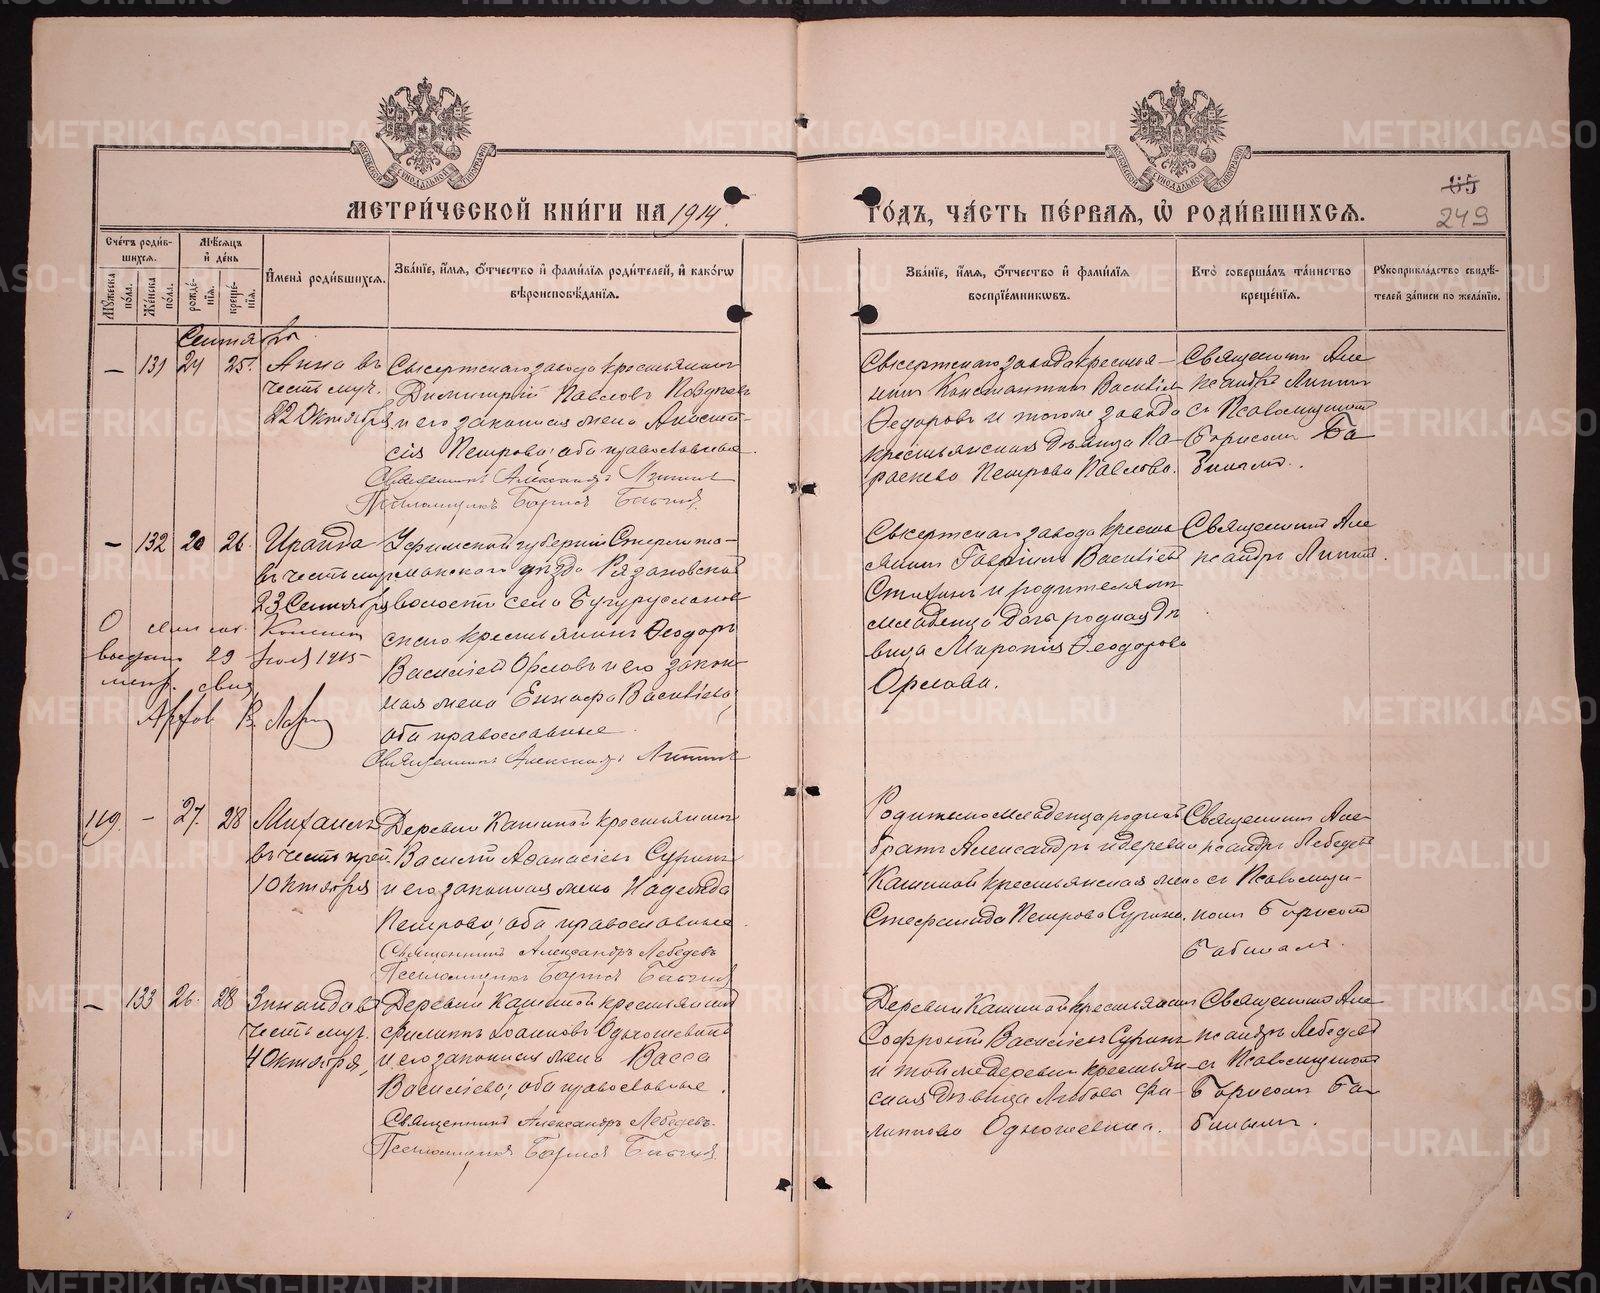 МЕТРИ́ЧЕСКОЙ КНИ́ГИ НА 1914
ГО́ДЪ, ЧА́СТЬ ПЕ́РВАЯ, Ѽ РОДИ́ВШИХСЯ.
65
249
Сче́тъ роди́в-
шихся.
Му́жеска по́ла.
Же́нска по́ла.
Мѣ́сяцъ и҆ де́нь
рожде́-
нїя.
креще́-
нїя.
И҆мена̀ роди́вшихся.
Зва́нїе, и҆́мя, ѻ҆́тчество и҆ фами́лїя роди́телей, и҆ како́гѡ
вѣроисповѣ́данїя.
Зва́нїе, и҆́мя, ѻ҆́тчество и҆ фами́лїя
воспрїе́мникѡвъ.
Кто̀ соверша́лъ та́инство
креще́нїя.
Рꙋкоприкла́дство свидѣ́-
телей за́писи по жела́нїю.
Сентябрь
— 131 24 25.
Анна въ
честь муч.
22 Октября
Сысертскаго завода крестьянинъ
Димитрий Павловъ
и его законная жена Анаста-
сія Петрова; оба православные.
Священникъ Александръ
Псаломщикъ Борисъ Бабинъ
Сысертскаго завода кресть-
янинъ Константинъ Васильевъ
Федоровъ и того же завода
крестьянская дѣвица Па-
раскева Петрова Павлова.
Священникъ Але-
ксандръ
съ Псаломщикомъ
Борисомъ Ба-
бинымъ.
— 132 20 26
Ираида
въ честь муч.
23 Сентября
Уфимской губерніи Стерлита-
макскаго уѣзда Рязановской
волости села Бугуруслановс-
скаго крестьянинъ Феодоръ
Васильевъ Орловъ и его закон-
ная жена Васильева;
оба православные.
Священникъ Александръ
О
выдано 29 1915
метр. свид.
Сысертскаго завода кресть-
янинъ Гавріилъ Васильевъ
и родителямъ
младенца дочь родная дѣ-
вица Миропія Феодорова
Орлова.
Священникъ Але-
ксандръ
119. — 27. 28
Михаилъ
въ честь преп.
1 Октября
Деревни Кашиной крестьянинъ
Василій Афанасіевъ Суринъ
и его законная жена Надежда
Петрова; оба православные.
Священникъ Александръ Лебедевъ
Псаломщикъ Борисъ Бабинъ
Родителю младенца родной
братъ Александръ и деревни
Кашиной крестьянская жена
Стефанида Петрова Сурина.
Священникъ Але-
ксандръ Лебедевъ
съ Псаломщи-
комъ Борисомъ
Бабинымъ.
— 133 26. 28
Зинаида въ
честь муч.
4 Октября,
Деревни Кашиной крестьянинъ
Филиппъ Іоанновъ Одношевинъ
и его законная жена Васса
Васильева; оба православные.
Священникъ Александръ Лебедевъ.
Псаломщикъ Борисъ Бабинъ.
Деревни Кашиной крестьянинъ
Софроній Васильевъ Суринъ
и той же деревни крестьян-
ская дѣвица Любовь Фи-
липпова Одношевина.
Священникъ Але-
ксандръ Лебедевъ
съ Псаломщикомъ
Борисомъ Ба-
бинымъ.
METRIKI.GASO-URAL.RU